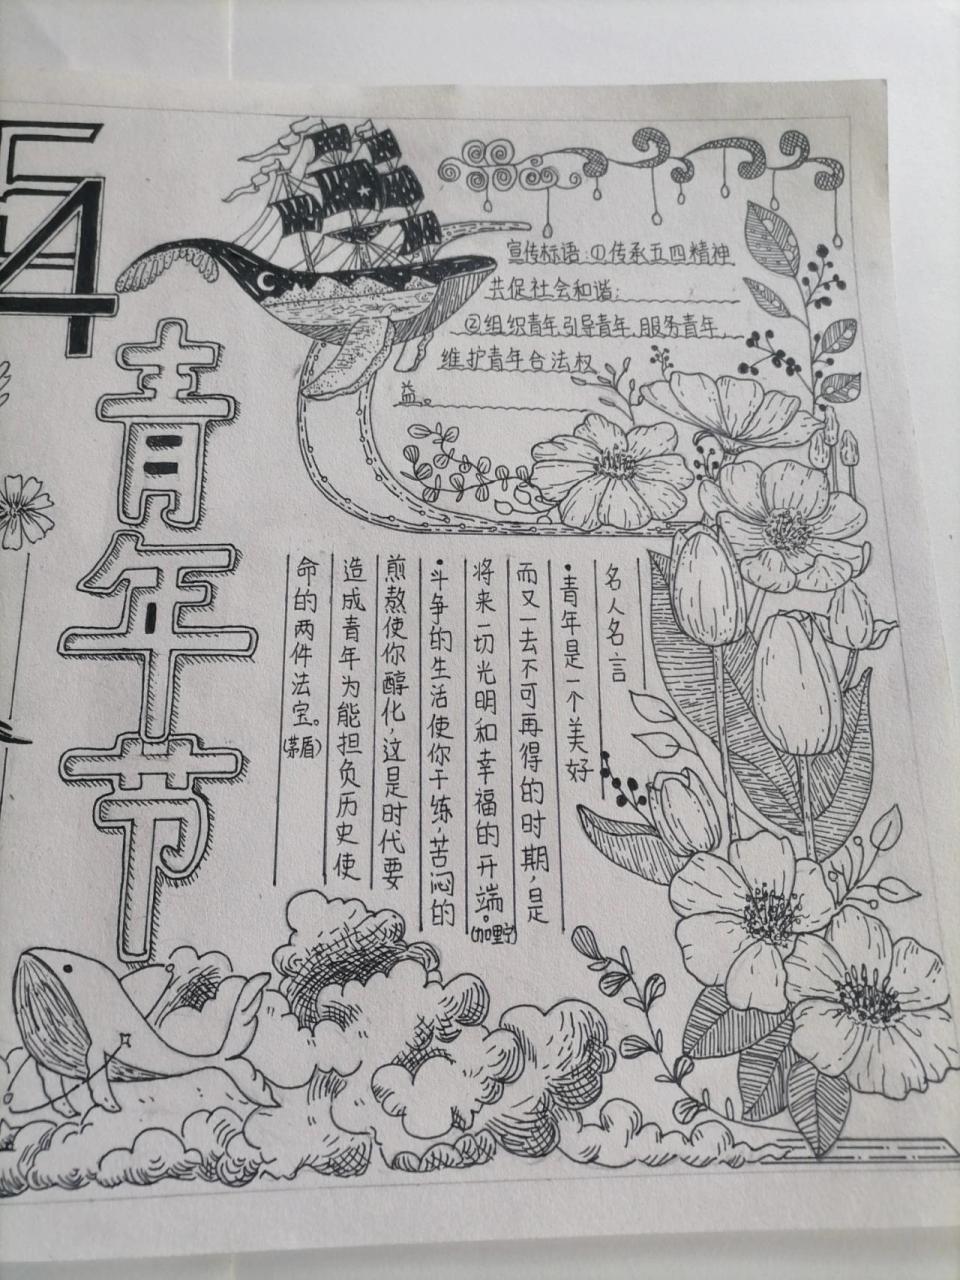 54
青年节
宣传标语:①传承五四精神
共促社会和谐;
②组织青年,引导青年,服务青年,
维护青年合法权
益。
名人名言
·青年是一个美好
而又一去不可再得的时期,是
将来一切光明和幸福的开端。(加里宁)
·斗争的生活使你干练,苦闷的
煎熬使你醇化,这是时代要
造成青年为能担负历史使
命的两件法宝。(茅盾)